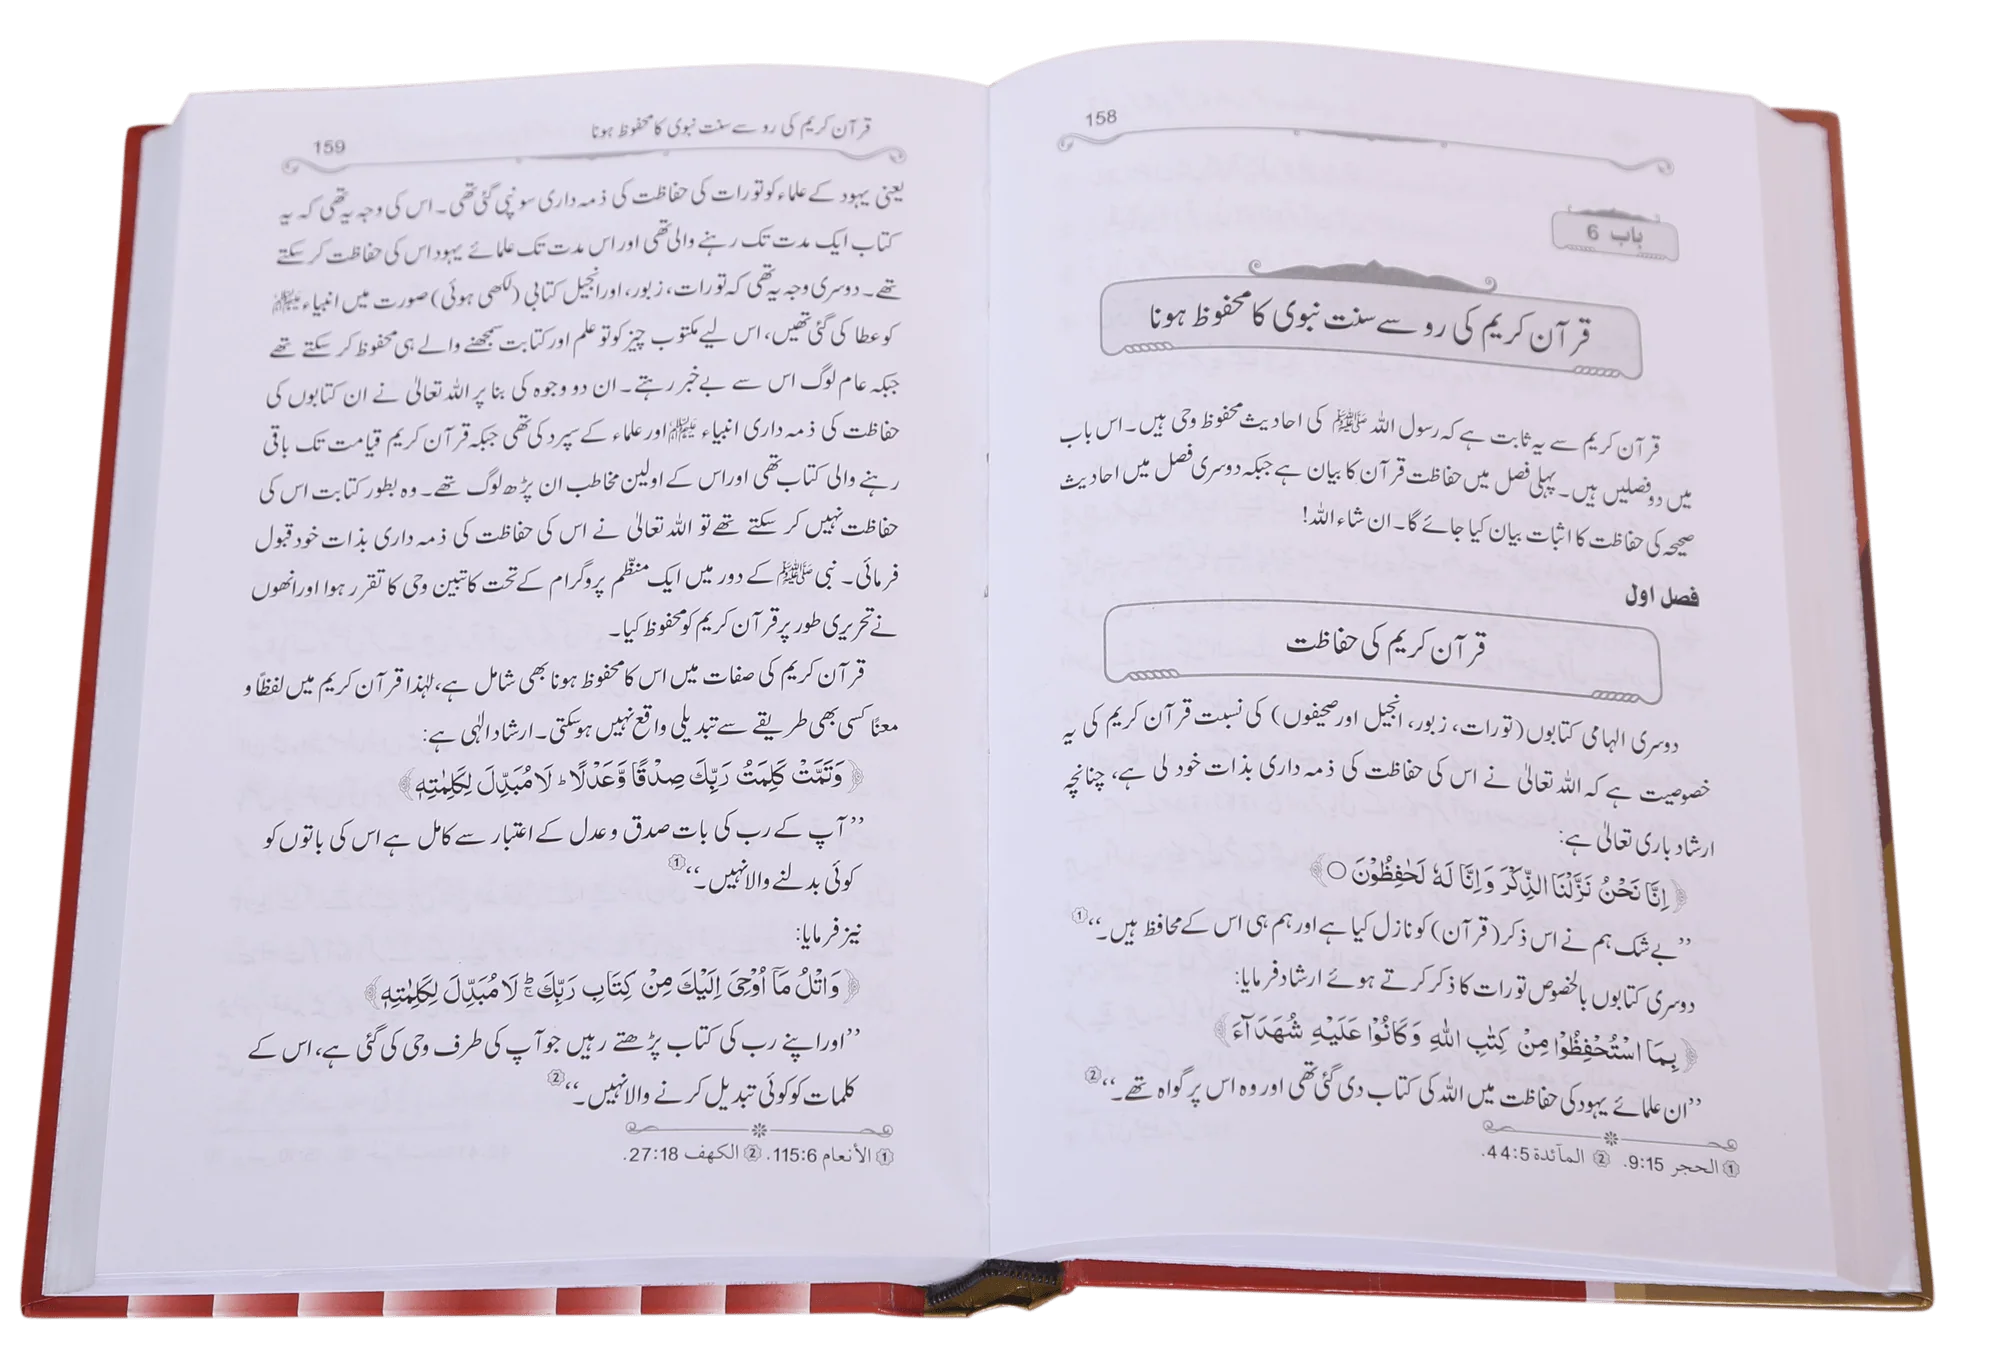 158
باب 6
قرآن کریم کی رو سے سنت نبوی کا محفوظ ہونا
قرآن کریم سے یہ ثابت ہے کہ رسول اللہ ﷺ کی احادیث محفوظ وحی ہیں۔ اس باب
میں دو فصلیں ہیں۔ پہلی فصل میں حفاظت قرآن کا بیان ہے جبکہ دوسری فصل میں احادیث
صحیحہ کی حفاظت کا اثبات بیان کیا جائے گا۔ ان شاء اللہ!
فصل اول
قرآن کریم کی حفاظت
دوسری الہامی کتابوں (تورات، زبور، انجیل اور صحیفوں) کی نسبت قرآن کریم کی یہ
خصوصیت ہے کہ اللہ تعالیٰ نے اس کی حفاظت کی ذمہ داری بذات خود لی ہے، چنانچہ
ارشاد باری تعالیٰ ہے:
﴿اِنَّا نَحْنُ نَزَّلْنَا الذِّكْرَ وَاِنَّا لَهٗ لَحٰفِظُوْنَ ○﴾
’’بے شک ہم نے اس ذکر (قرآن) کو نازل کیا ہے اور ہم ہی اس کے محافظ ہیں۔‘‘①
دوسری کتابوں بالخصوص تورات کا ذکر کرتے ہوئے ارشاد فرمایا:
﴿بِمَا اسْتُحْفِظُوْا مِنْ كِتٰبِ اللّٰهِ وَكَانُوْا عَلَيْهِ شُهَدَآءَ﴾
’’ان علمائے یہود کی حفاظت میں اللہ کی کتاب دی گئی تھی اور وہ اس پر گواہ تھے۔‘‘②
① الحجر 9:15. ② المآئدة 44:5.
159 قرآن کریم کی رو سے سنت نبوی کا محفوظ ہونا
یعنی یہود کے علماء کو تورات کی حفاظت کی ذمہ داری سونپی گئی تھی۔ اس کی وجہ یہ تھی کہ یہ
کتاب ایک مدت تک رہنے والی تھی اور اس مدت تک علمائے یہود اس کی حفاظت کر سکتے
تھے۔ دوسری وجہ یہ تھی کہ تورات، زبور، اور انجیل کتابی (لکھی ہوئی) صورت میں انبیاء
کو عطا کی گئی تھیں، اس لیے مکتوب چیز کو تو علم اور کتابت سمجھنے والے ہی محفوظ کر سکتے تھے
جبکہ عام لوگ اس سے بے خبر رہتے۔ ان دو وجوہ کی بنا پر اللہ تعالیٰ نے ان کتابوں کی
حفاظت کی ذمہ داری انبیاء اور علماء کے سپرد کی تھی جبکہ قرآن کریم قیامت تک باقی
رہنے والی کتاب تھی اور اس کے اولین مخاطب ان پڑھ لوگ تھے۔ وہ بطور کتابت اس کی
حفاظت نہیں کر سکتے تھے تو اللہ تعالیٰ نے اس کی حفاظت کی ذمہ داری بذات خود قبول
فرمائی۔ نبی ﷺ کے دور میں ایک منظّم پروگرام کے تحت کاتبین وحی کا تقرر ہوا اور انھوں
نے تحریری طور پر قرآن کریم کو محفوظ کیا۔
قرآن کریم کی صفات میں اس کا محفوظ ہونا بھی شامل ہے، لہٰذا قرآن کریم میں لفظًا و
معنًا کسی بھی طریقے سے تبدیلی واقع نہیں ہو سکتی۔ ارشاد الٰہی ہے:
﴿وَتَمَّتْ كَلِمَتُ رَبِّكَ صِدْقًا وَّعَدْلًا ؕ لَا مُبَدِّلَ لِكَلِمٰتِهٖ﴾
’’آپ کے رب کی بات صدق و عدل کے اعتبار سے کامل ہے اس کی باتوں کو
کوئی بدلنے والا نہیں۔‘‘①
نیز فرمایا:
﴿وَاتْلُ مَآ اُوْحِىَ اِلَيْكَ مِنْ كِتَابِ رَبِّكَ ۚؕ لَا مُبَدِّلَ لِكَلِمٰتِهٖ﴾
’’اور اپنے رب کی کتاب پڑھتے رہیں جو آپ کی طرف وحی کی گئی ہے، اس کے
کلمات کو کوئی تبدیل کرنے والا نہیں۔‘‘②
① الأنعام 115:6. ② الكهف 27:18.